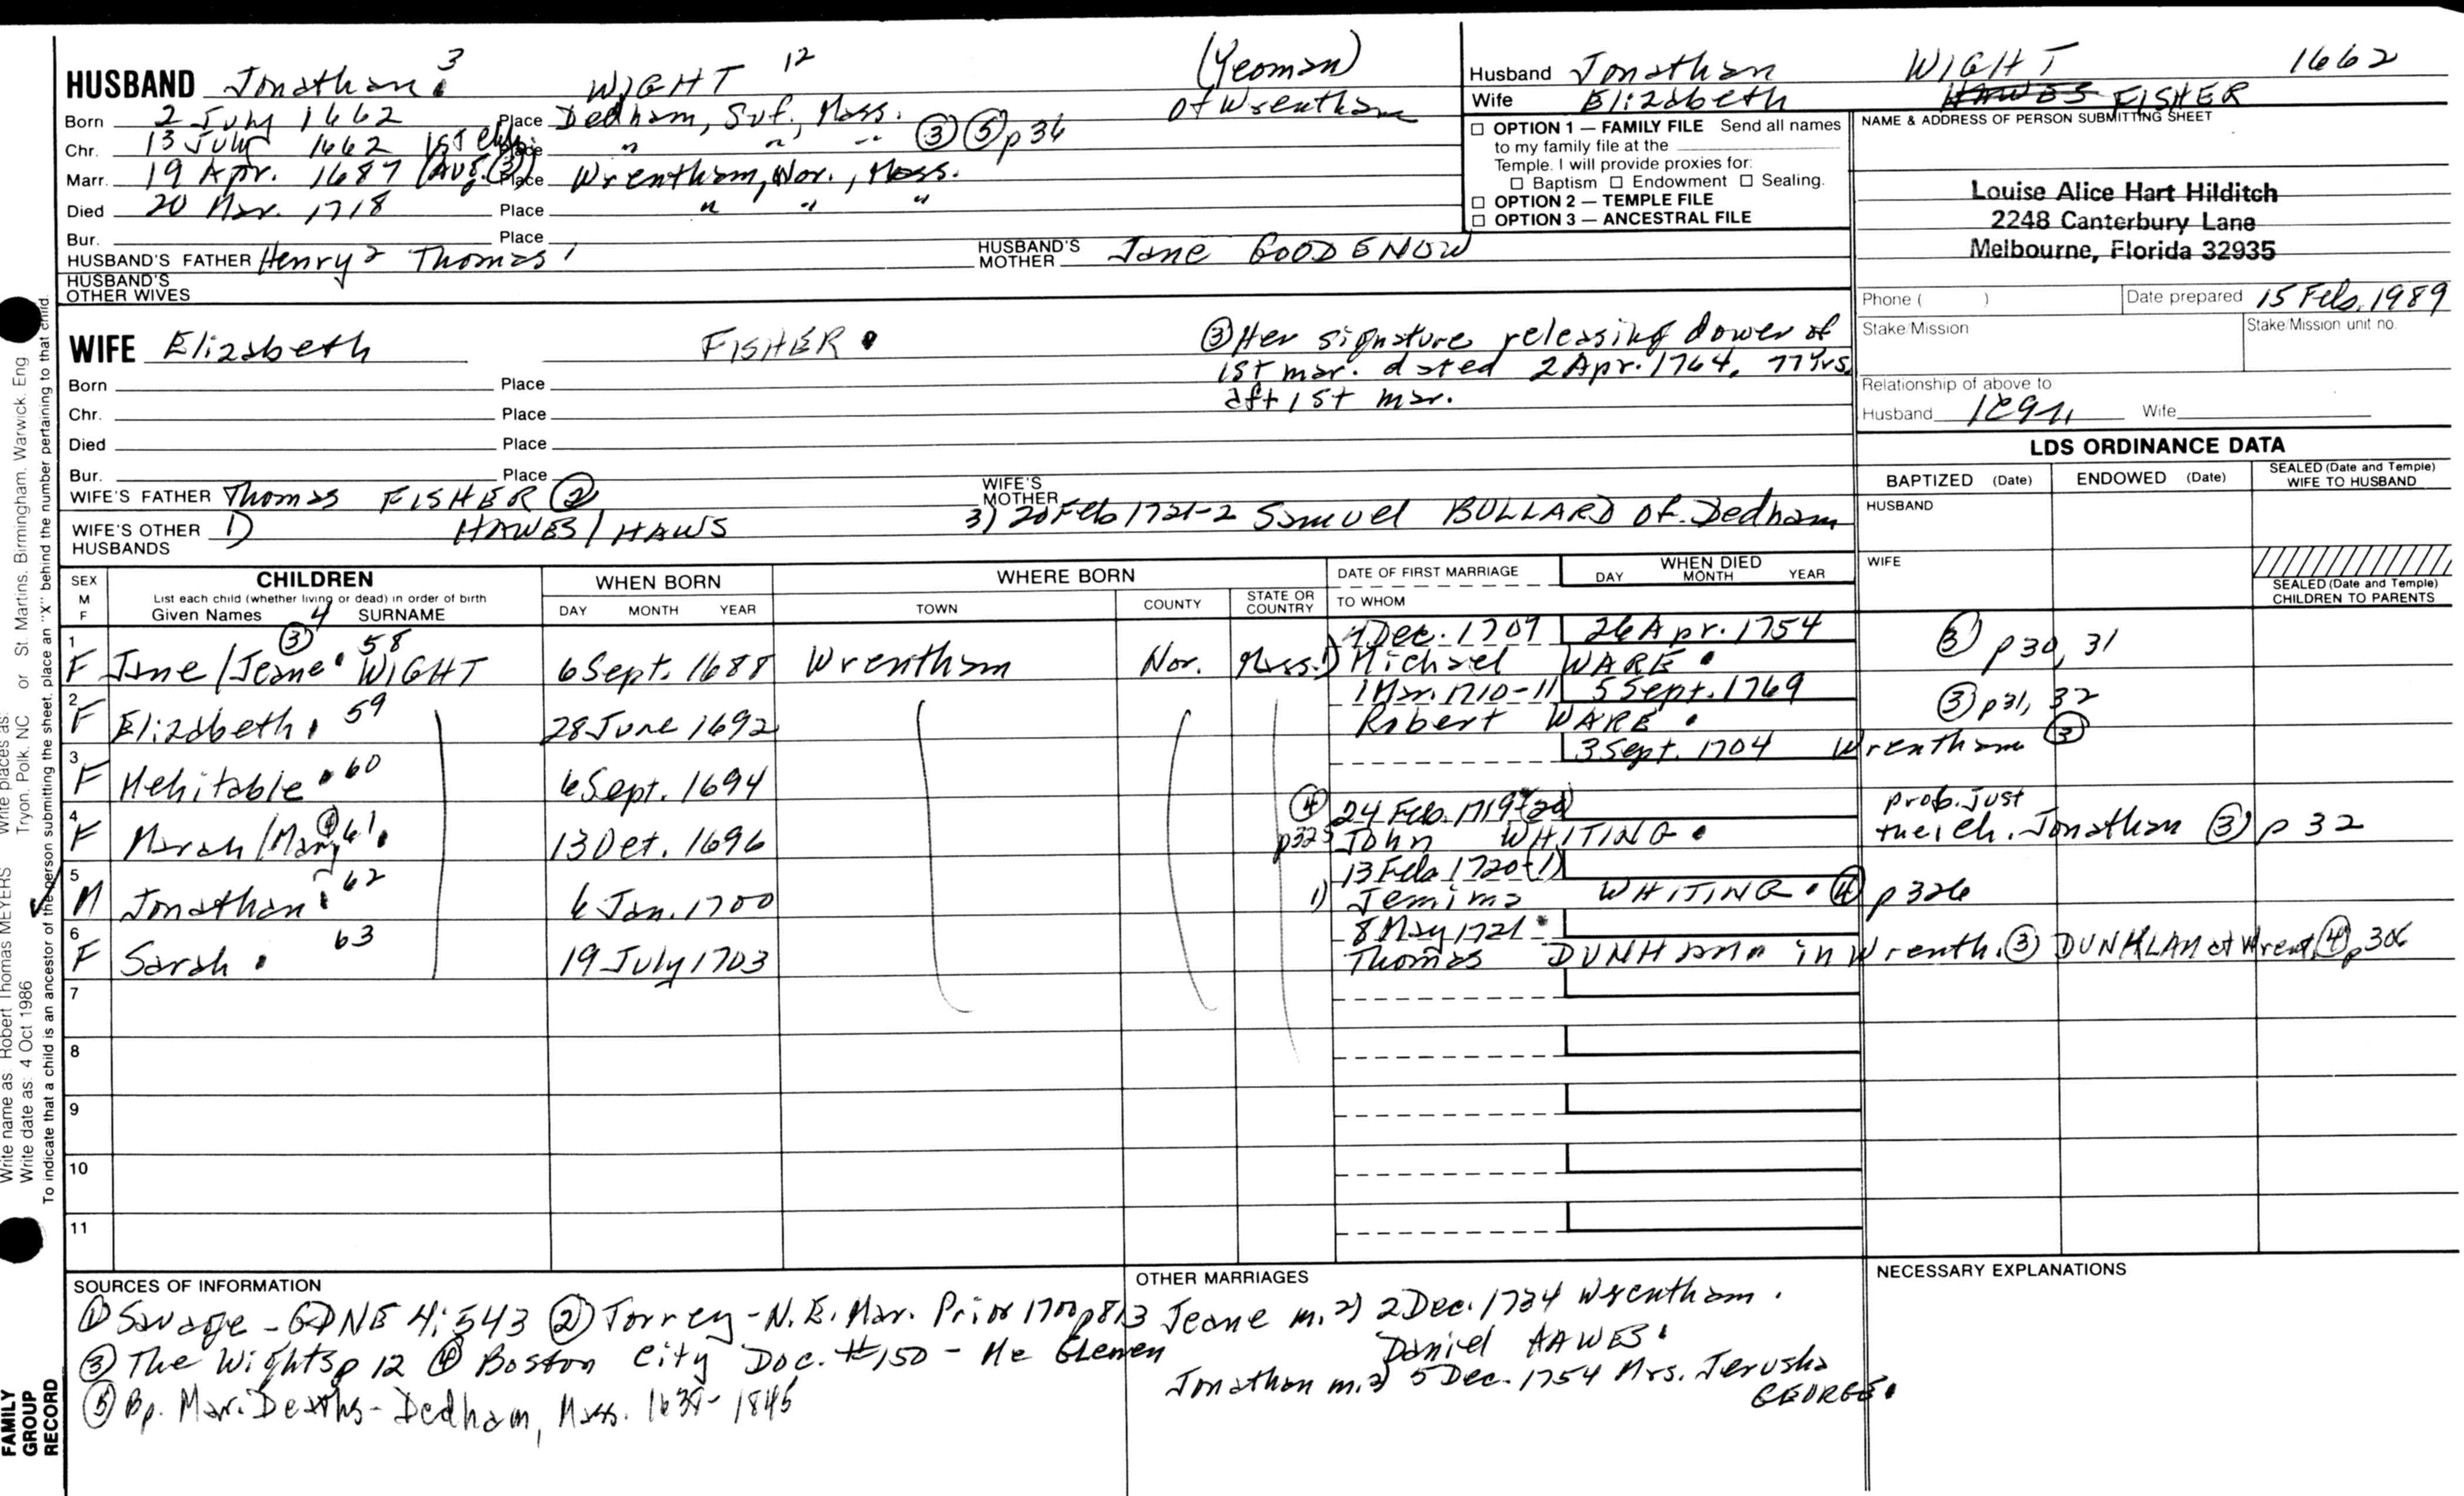 HUSBAND Jonathan 3 WIGHT 12 (Yeoman)
Born 2 July 1662 Place Dedham, Suf., Mass. of Wrentham
Chr. 13 July 1662 1st Ch. Place " " " ③ ⑤ p36
Marr. 19 Apr. 1687 (Aug. ③) Place Wrentham, Nor., Mass.
Died 20 Mar. 1718 Place " " "
Bur. Place
HUSBAND'S FATHER Henry 2 Thomas 1 HUSBAND'S MOTHER Jane GOODENOW
HUSBAND'S OTHER WIVES
Husband Jonathan WIGHT 1662
Wife Elizabeth HAWES FISHER
☐ OPTION 1 — FAMILY FILE Send all names
to my family file at the
Temple. I will provide proxies for:
☐ Baptism ☐ Endowment ☐ Sealing.
☐ OPTION 2 — TEMPLE FILE
☐ OPTION 3 — ANCESTRAL FILE
NAME & ADDRESS OF PERSON SUBMITTING SHEET
Louise Alice Hart Hilditch
2248 Canterbury Lane
Melbourne, Florida 32935
Phone ( ) Date prepared 15 Feb. 1989
Stake/Mission Stake/Mission unit no.
Relationship of above to
Husband Wife
WIFE Elizabeth FISHER
③ Her signature releasing dower of
1st mar. dated 2 Apr. 1764, 77 yrs
aft 1st mar.
Born Place
Chr. Place
Died Place
Bur. Place
WIFE'S FATHER Thomas FISHER ② WIFE'S MOTHER
WIFE'S OTHER HUSBANDS 1) HAWES/HAWS 3) 20 Feb 1721-2 Samuel BULLARD of Dedham
LDS ORDINANCE DATA
BAPTIZED (Date) ENDOWED (Date) SEALED (Date and Temple) WIFE TO HUSBAND
HUSBAND
WIFE
SEALED (Date and Temple) CHILDREN TO PARENTS
SEX M F CHILDREN WHEN BORN WHERE BORN DATE OF FIRST MARRIAGE WHEN DIED
List each child (whether living or dead) in order of birth
Given Names 4 SURNAME DAY MONTH YEAR TOWN COUNTY STATE OR COUNTRY TO WHOM DAY MONTH YEAR
③ 58 1 Dec. 1709 26 Apr. 1754
1 F Jane/Jeane WIGHT 6 Sept. 1688 Wrentham Nor. Mass. 1) Michael WARE ③ p30, 31
1 Mar. 1710-11 5 Sept. 1769
2 F Elizabeth 59 28 June 1692 Robert WARE ③ p31, 32
3 Sept. 1704 Wrentham ③
3 F Mehitable 60 6 Sept. 1694
④ 24 Feb. 1719 (20) prob. just
4 F Marah/Mary ④ 61 13 Oct. 1696 p325 John WHITING their ch. Jonathan ③ p 32
13 Feb 1720 (1)
5 M Jonathan 62 6 Jan. 1700 1) Jemima WHITING ④ p 326
8 May 1721
6 F Sarah 63 19 July 1703 Thomas DUNHAM in Wrenth. ③ DUNKLAN at Wrent. ④ p306
7
8
9
10
11
SOURCES OF INFORMATION
① Savage - GDNE 4:543 ② Torrey - N.E. Mar. Prior 1700 p813
③ The Wights p 12 ④ Boston City Doc. #150 -
⑤ Bp. Mar. Deaths - Dedham, Mass. 1638-1845
OTHER MARRIAGES
Jeane m. 2) 2 Dec. 1734 Wrentham.
Daniel HAWES
Jonathan m. 2) 5 Dec. 1754 Mrs. Jerusha
GEORGE
NECESSARY EXPLANATIONS
FAMILY GROUP RECORD
Write name as: Robert Thomas MEYERS Write places as: St. Martins, Birmingham, Warwick, Eng
Write date as: 4 Oct 1986 Tryon, Polk, NC or
To indicate that a child is an ancestor of the person submitting the sheet, place an "X" behind the number pertaining to that child.